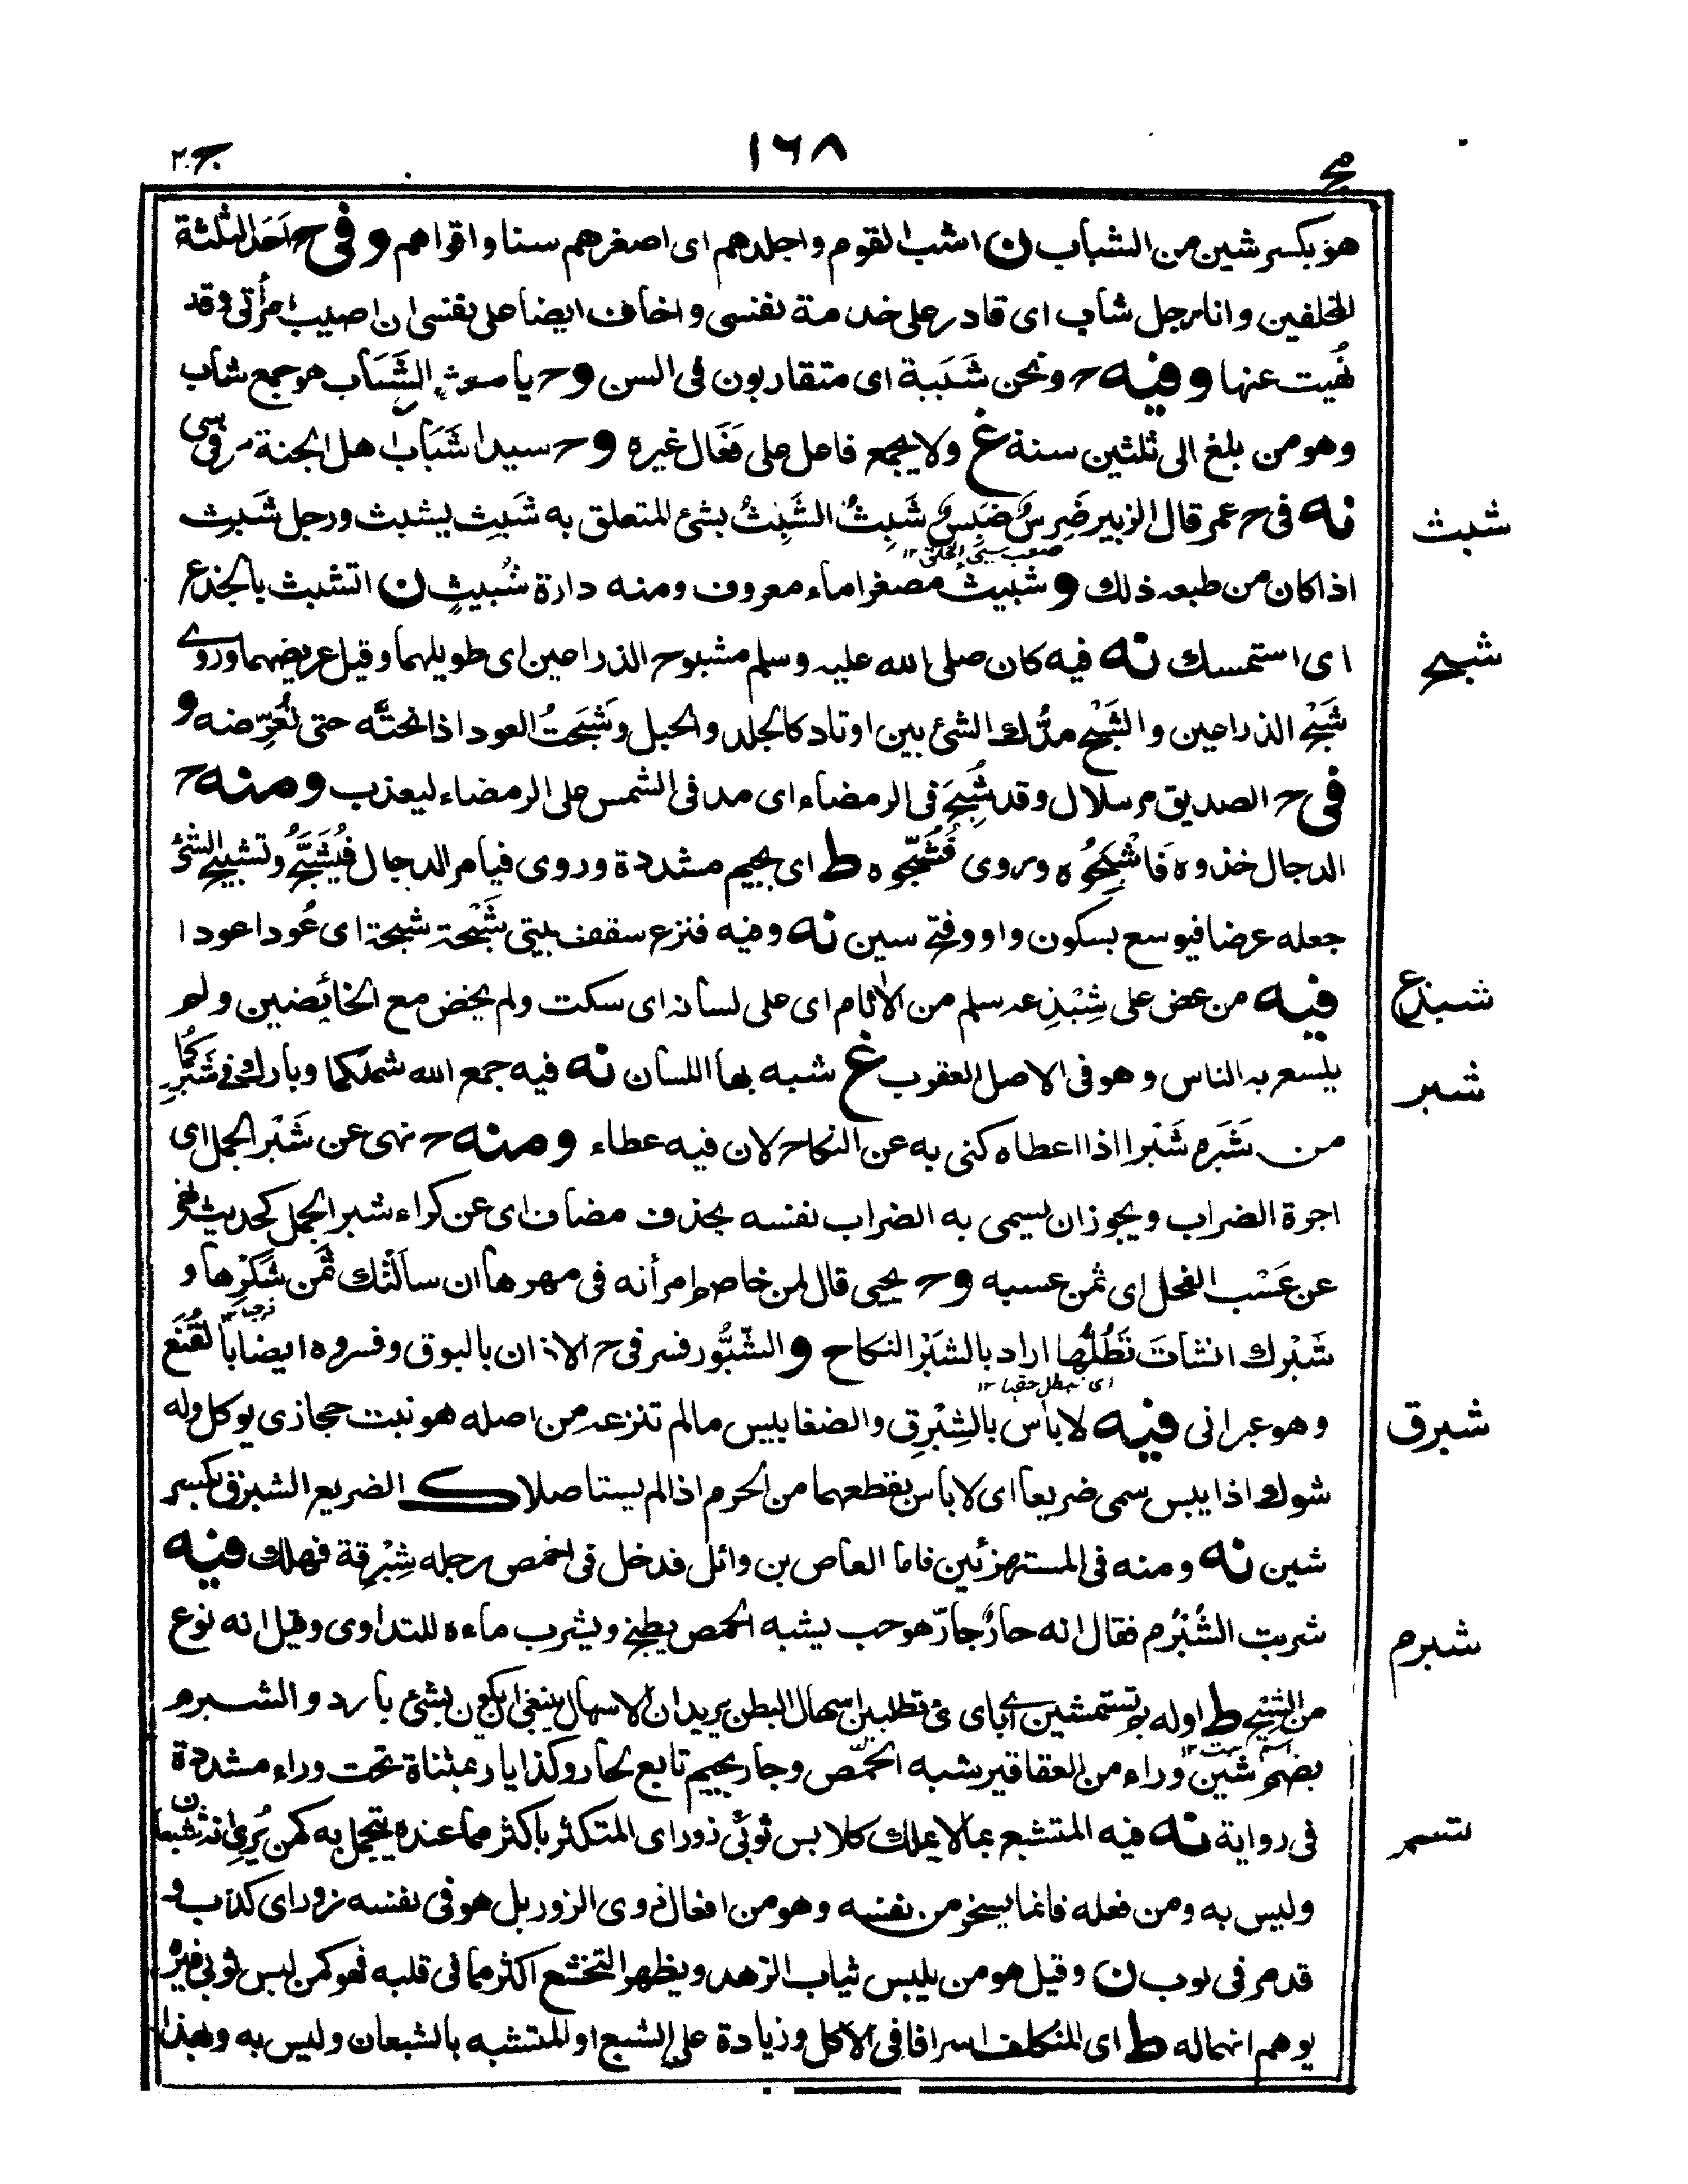 مج
١٦٨
ج.٢
هو بكسر شين من الشباب ن اشب القوم واجلدهم اى اصغرهم سنا واقواهم وفى ح احَد الثلثة
المخلفين وانا رجل شاب اى قادر على خدمة نفسى واخاف ايضا على نفسى ان اصيب امرأتى وقد
نُهيت عنها وفيه ح ونحن شَبَبة اى متقاربون فى السن وح يا معشر الشَبَاب هو جمع شاب
وهو من بلغ الى ثلثين سنة غ ولا يجمع فاعل على فَعَال غيره وح سيدا شَبَاب اهل الجنة مر فى
نه فى ح عمر قال الزبير ضَرِسٌ ضَبِسٌ شَبِثٌ الشَبِثُ بشئ المتعلق به شَبِث يشبث ورجل شَبِث
صعب سيئ الخلق ١٢
شبث
اذا كان من طبعه ذلك و شبيث مصغرا ماء معروف ومنه دارة شُبيثٍ ن التشبث بالجذع
اى استمسك نه فيه كان صلى الله عليه وسلم مشبوح الذراعين اى طويلهما وقيل عريضهما وروى
شبح
شَبْح الذراعين والشَبْح مدّك الشئ بين اوتاد كالجلد والحبل وشَبَحتُ العود اذا نحتَّه حتى تُعرِّضه و
فى ح الصديق مر بلال وقد شُبِحَ فى الرمضاء اى مد فى الشمس على الرمضاء ليعذب ومنه ح
الدجال خذوه فَاشْبَحُوه وروى فشُجّوه ط اى بجيم مشددة وروى فيامر الدجال فيُشَبَّح وتشبيح الشئ
جعله عرضا فيوسع بسكون واو وفتح سين نه وفيه فنزع سقف بيتى شَبْحة شبحة اى عُودا عودا
فيه من عض على شِبْذِعه سلم من الاثام اى على لسانه اى سكت ولم يخض مع الخائضين ولم
شبذع
يلسع به الناس وهو فى الاصل العقرب غ شبه بها اللسان نه فيه جمع الله شملكما وبارك فى شَبْرِكما
شبر
من شَبَره شَبْرا اذا اعطاه كنى به عن النكاح لان فيه عطاء ومنه ح نهى عن شَبْر الجمل اى
اجرة الضراب ويجوز ان يسمى به الضراب نفسه بحذف مضاف اى عن كراء شبر الجمل كحديث نهى
عن عَسْب الفحل اى ثمن عسبه وح يحيى قال لمن خاصم امرأته فى مهرها ان سالتْك ثمن شَكْرِها و
شَبْرك انشأت تَطُلُّها اراد بالشبْر النكاح و الشَبُّور فسر فى ح الاذان بالبوق وفسروه ايضا بالقُنْع
اى تبطل حقها ١٢
وهو عبرانى فيه لا باس بالشِبْرِق والضغابيس مالم تنزعه من اصله هو نبت حجازى يوكل وله
شبرق
شوك اذا يبس سمى ضريعا اى لا باس بقطعهما من الحرم اذا لم يستاصلا ك الضريع الشبرق بكسر
شين نه ومنه فى المستهزئين فاما العاص بن وائل فدخل فى اخمص رجله شِبْرِقة فهلك فيه
شربت الشُبْرُم فقال انه حارٌّ جارّ هو حب يشبه الحمص يطبخ ويشرب ماءه للتداوى وقيل انه نوع
شبرم
من الشيح ط اوله بم تستمشين اى باى شئ تطلبين اسهال البطن يريد ان الاسهال ينبغى ان يكون بشئ بارد والشبرم
بضم شين وراء من العقاقير شبه الحمّص وجار بجيم تابع لحار وكذا يار بمثناة تحت وراء مشددة
فى رواية نه فيه المتشبع بما لا يملك كلابس ثوبَى زور اى المتكثر باكثر مما عنده يتجمل به كمن يُرِى انه شبعان
وليس به ومن فعله فانما يسخر من نفسه وهو من افعال ذوى الزور بل هو فى نفسه زور اى كذب و
قد مر فى ثوب ن وقيل هو من يلبس ثياب الزهد ويظهر التخشع اكثر مما فى قلبه فهو كمن لبس ثوبى غيره
يوهم انهما له ط اى المتكلف اسرافا فى الاكل وزيادة على الشبع او المتشبه بالشبعان وليس به وبهذا